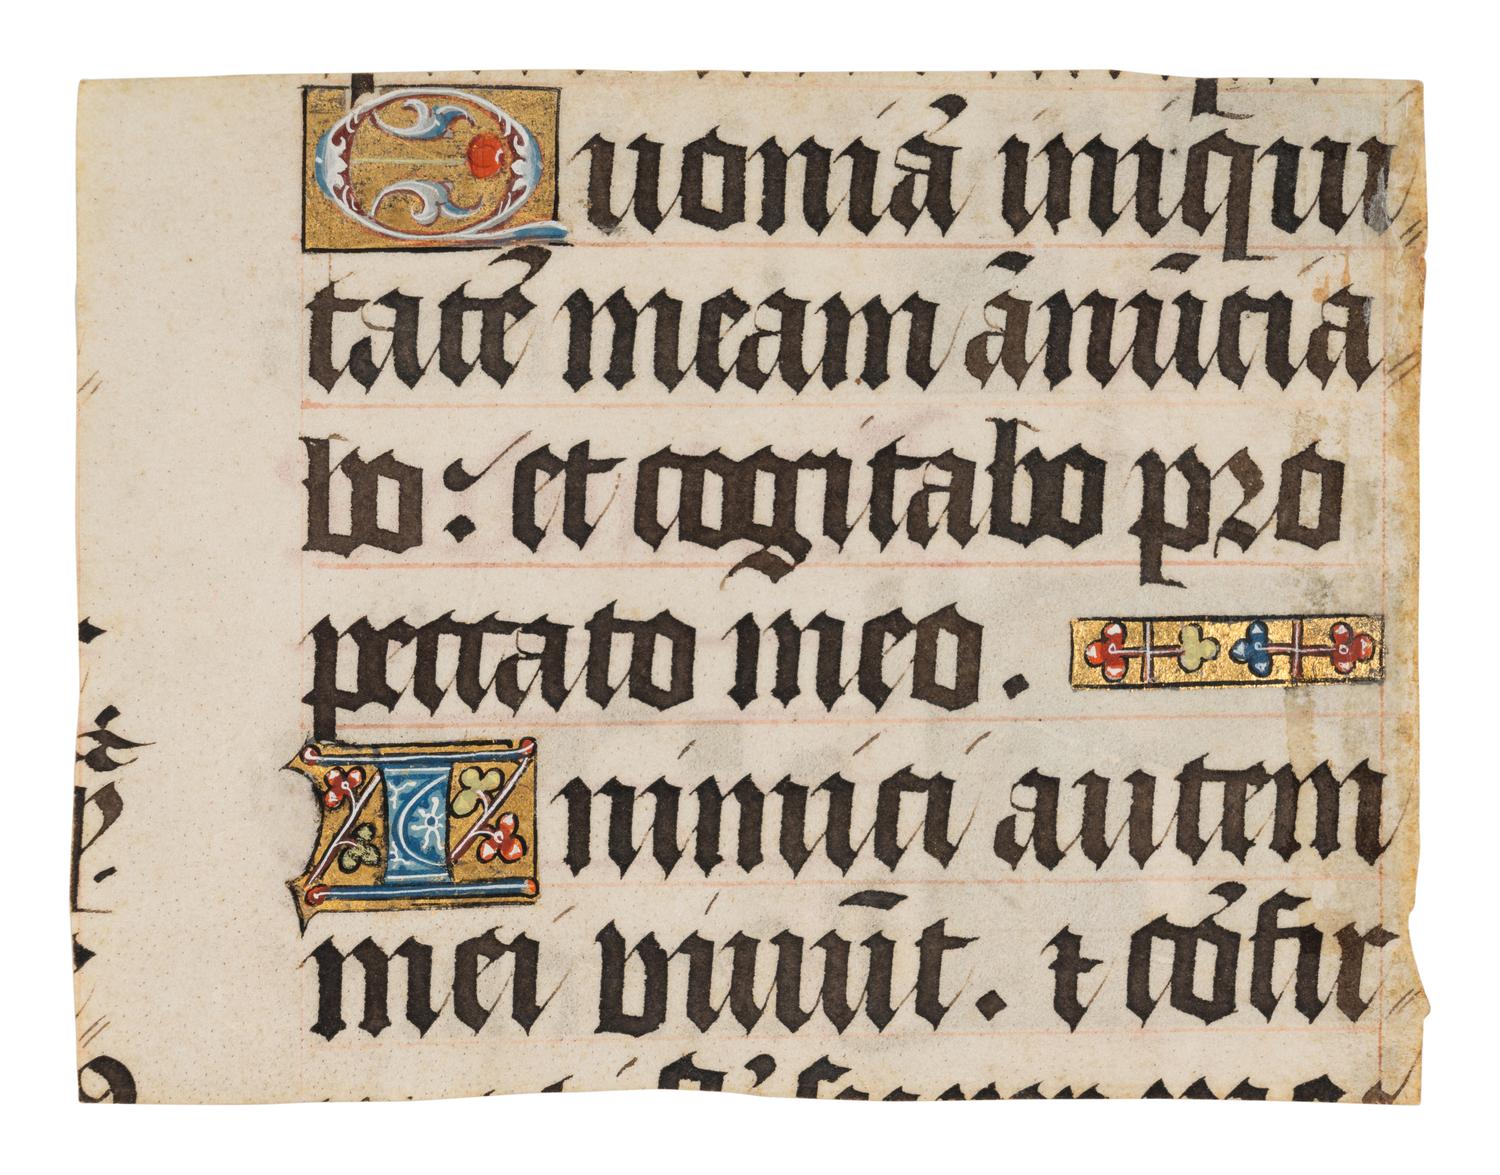 Quoniā iniqui
tatē meam ānūcia
bo: et cogitabo pro
peccato meo.
Inimici autem
mei viuūt. ⁊ cōfir